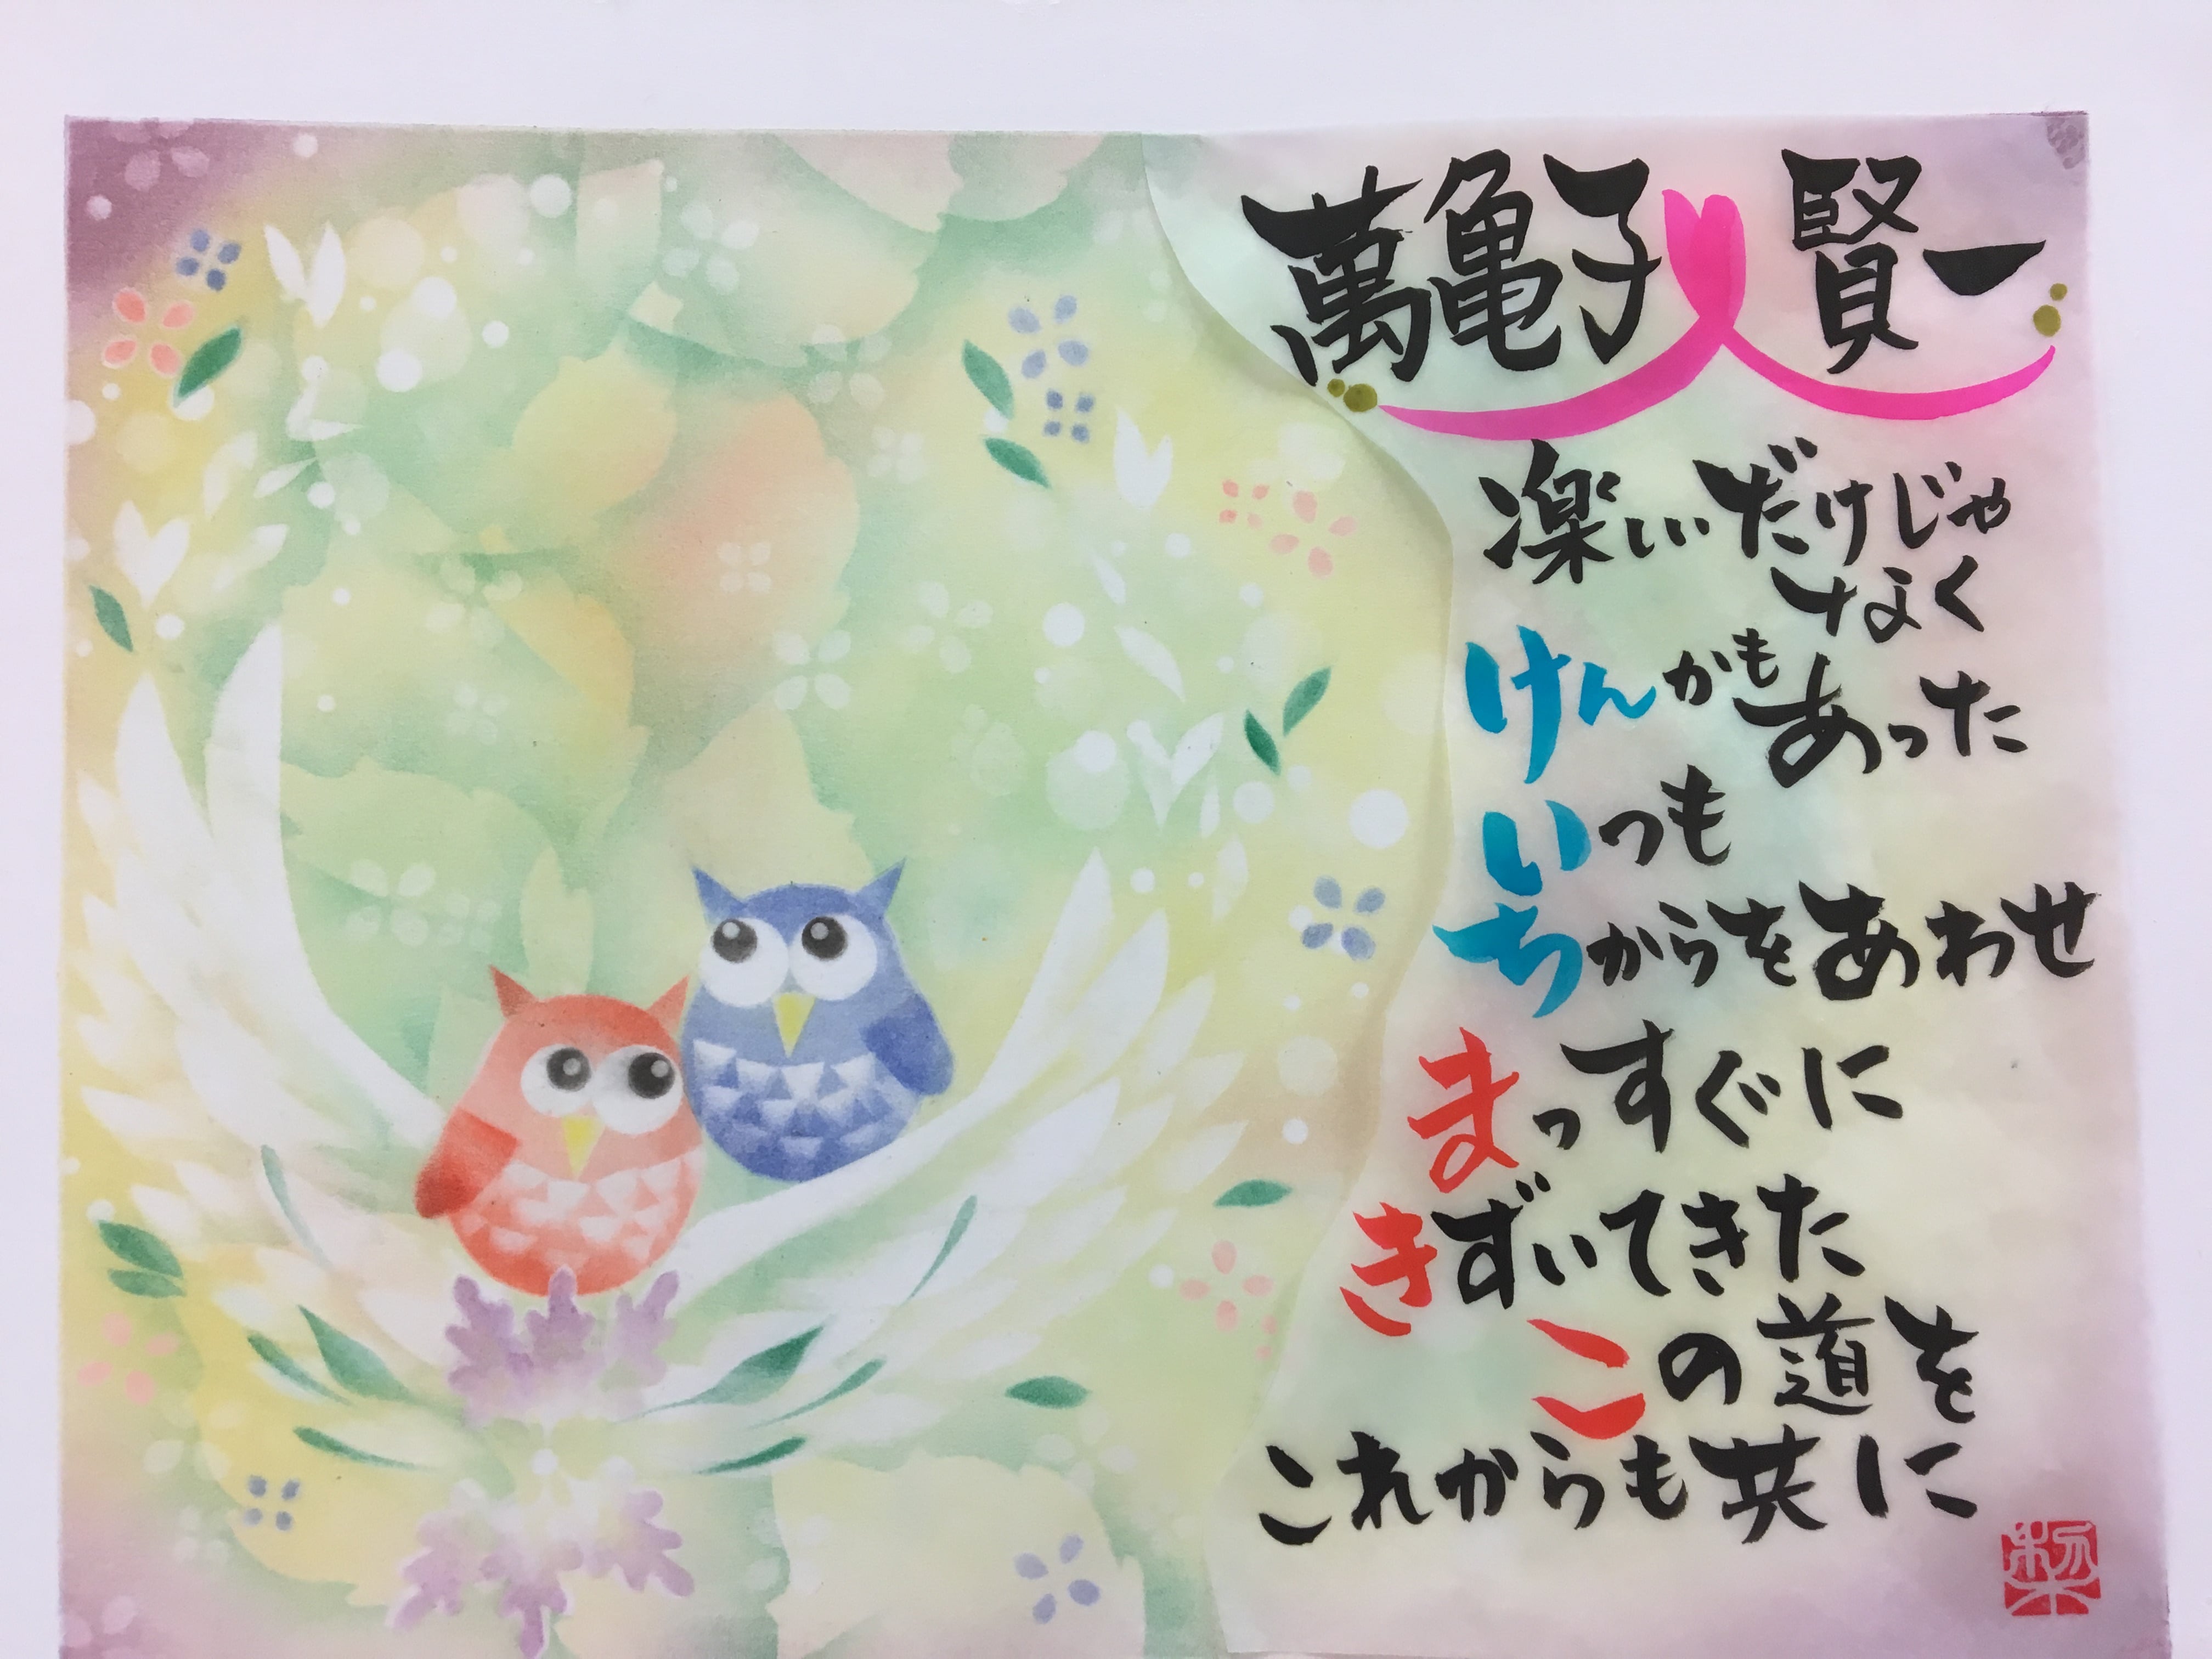 萬亀子 賢一
楽しいだけじゃ
なく
けんかもあった
いつも
ちからをあわせ
まっすぐに
きずいてきた
この道を
これからも共に